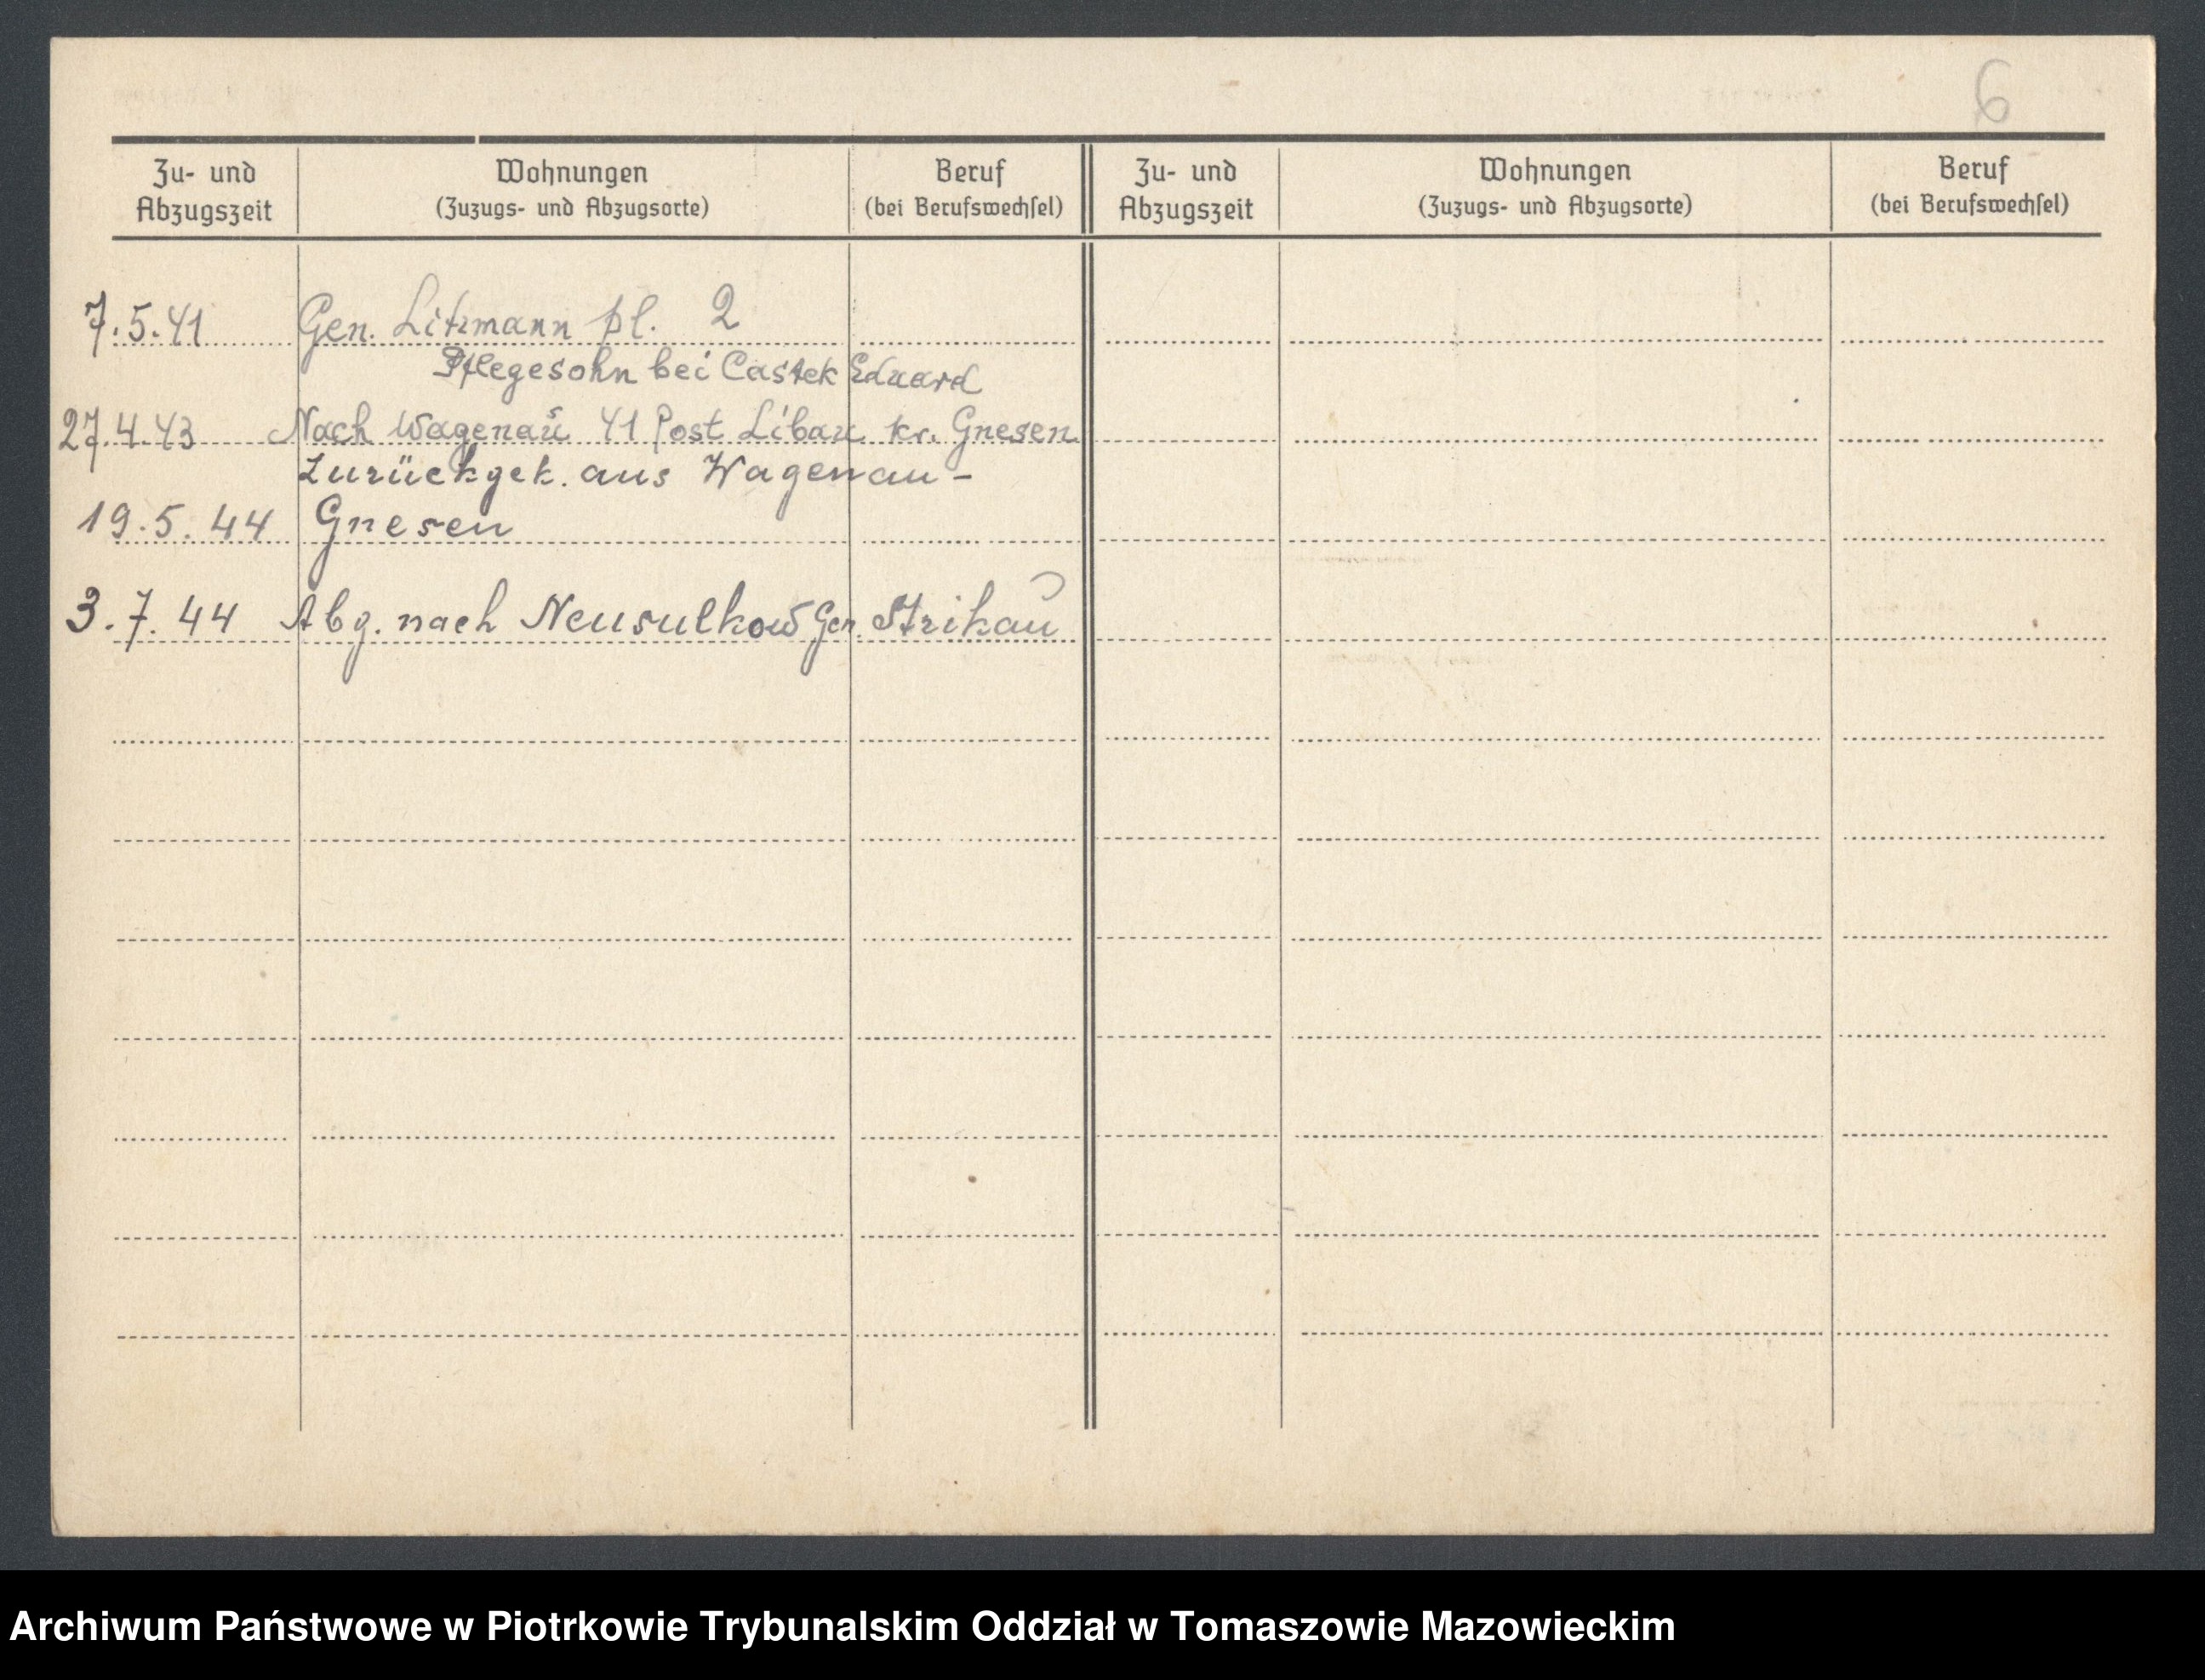 6
Zu- und Abzugszeit Wohnungen (Zuzugs- und Abzugsorte) Beruf (bei Berufswechsel) Zu- und Abzugszeit Wohnungen (Zuzugs- und Abzugsorte) Beruf (bei Berufswechsel)
7.5.41 Gen. Litzmann pl. 2
Pflegesohn bei Castek Eduard
27.4.43 Nach Wagenau 41 Post Libau kr. Gnesen
Zurückgek. aus Wagenau-
19.5.44 Gnesen
3.7.44 Abg. nach Neusulkow Gen. Strikau
Archiwum Państwowe w Piotrkowie Trybunalskim Oddział w Tomaszowie Mazowieckim